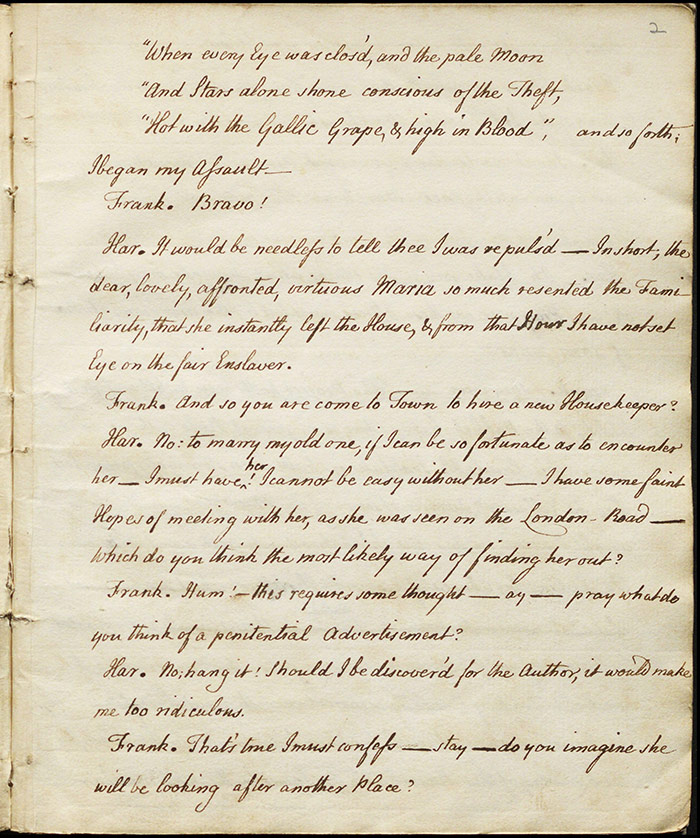 2
"When every Eye was clos'd, and the pale Moon
"And Stars alone shone conscious of the Theft,
"Hot with the Gallic Grape, & high in Blood", and so forth;
I began my Assault—
Frank. Bravo!
Har. It would be needless to tell thee I was repuls'd — In short, the
dear, lovely, affronted, virtuous Maria so much resented the Fami
liarity, that she instantly left the House, & from that Hour I have not set
Eye on the fair Enslaver.
Frank. And so you are come to Town to hire a new Housekeeper?
Har. No: to marry my old one, if I can be so fortunate as to encounter
her — I must have her! I cannot be easy without her — I have some faint
Hopes of meeting with her, as she was seen on the London-Road —
Which do you think the most likely way of finding her out?
Frank. Hum! — this requires some thought — ay — pray what do
you think of a penitential Advertisement?
Har. No; hang it! Should I be discover'd for the Author, it would make
me too ridiculous.
Frank. That's true I must confess — stay — do you imagine she
will be looking after another Place?